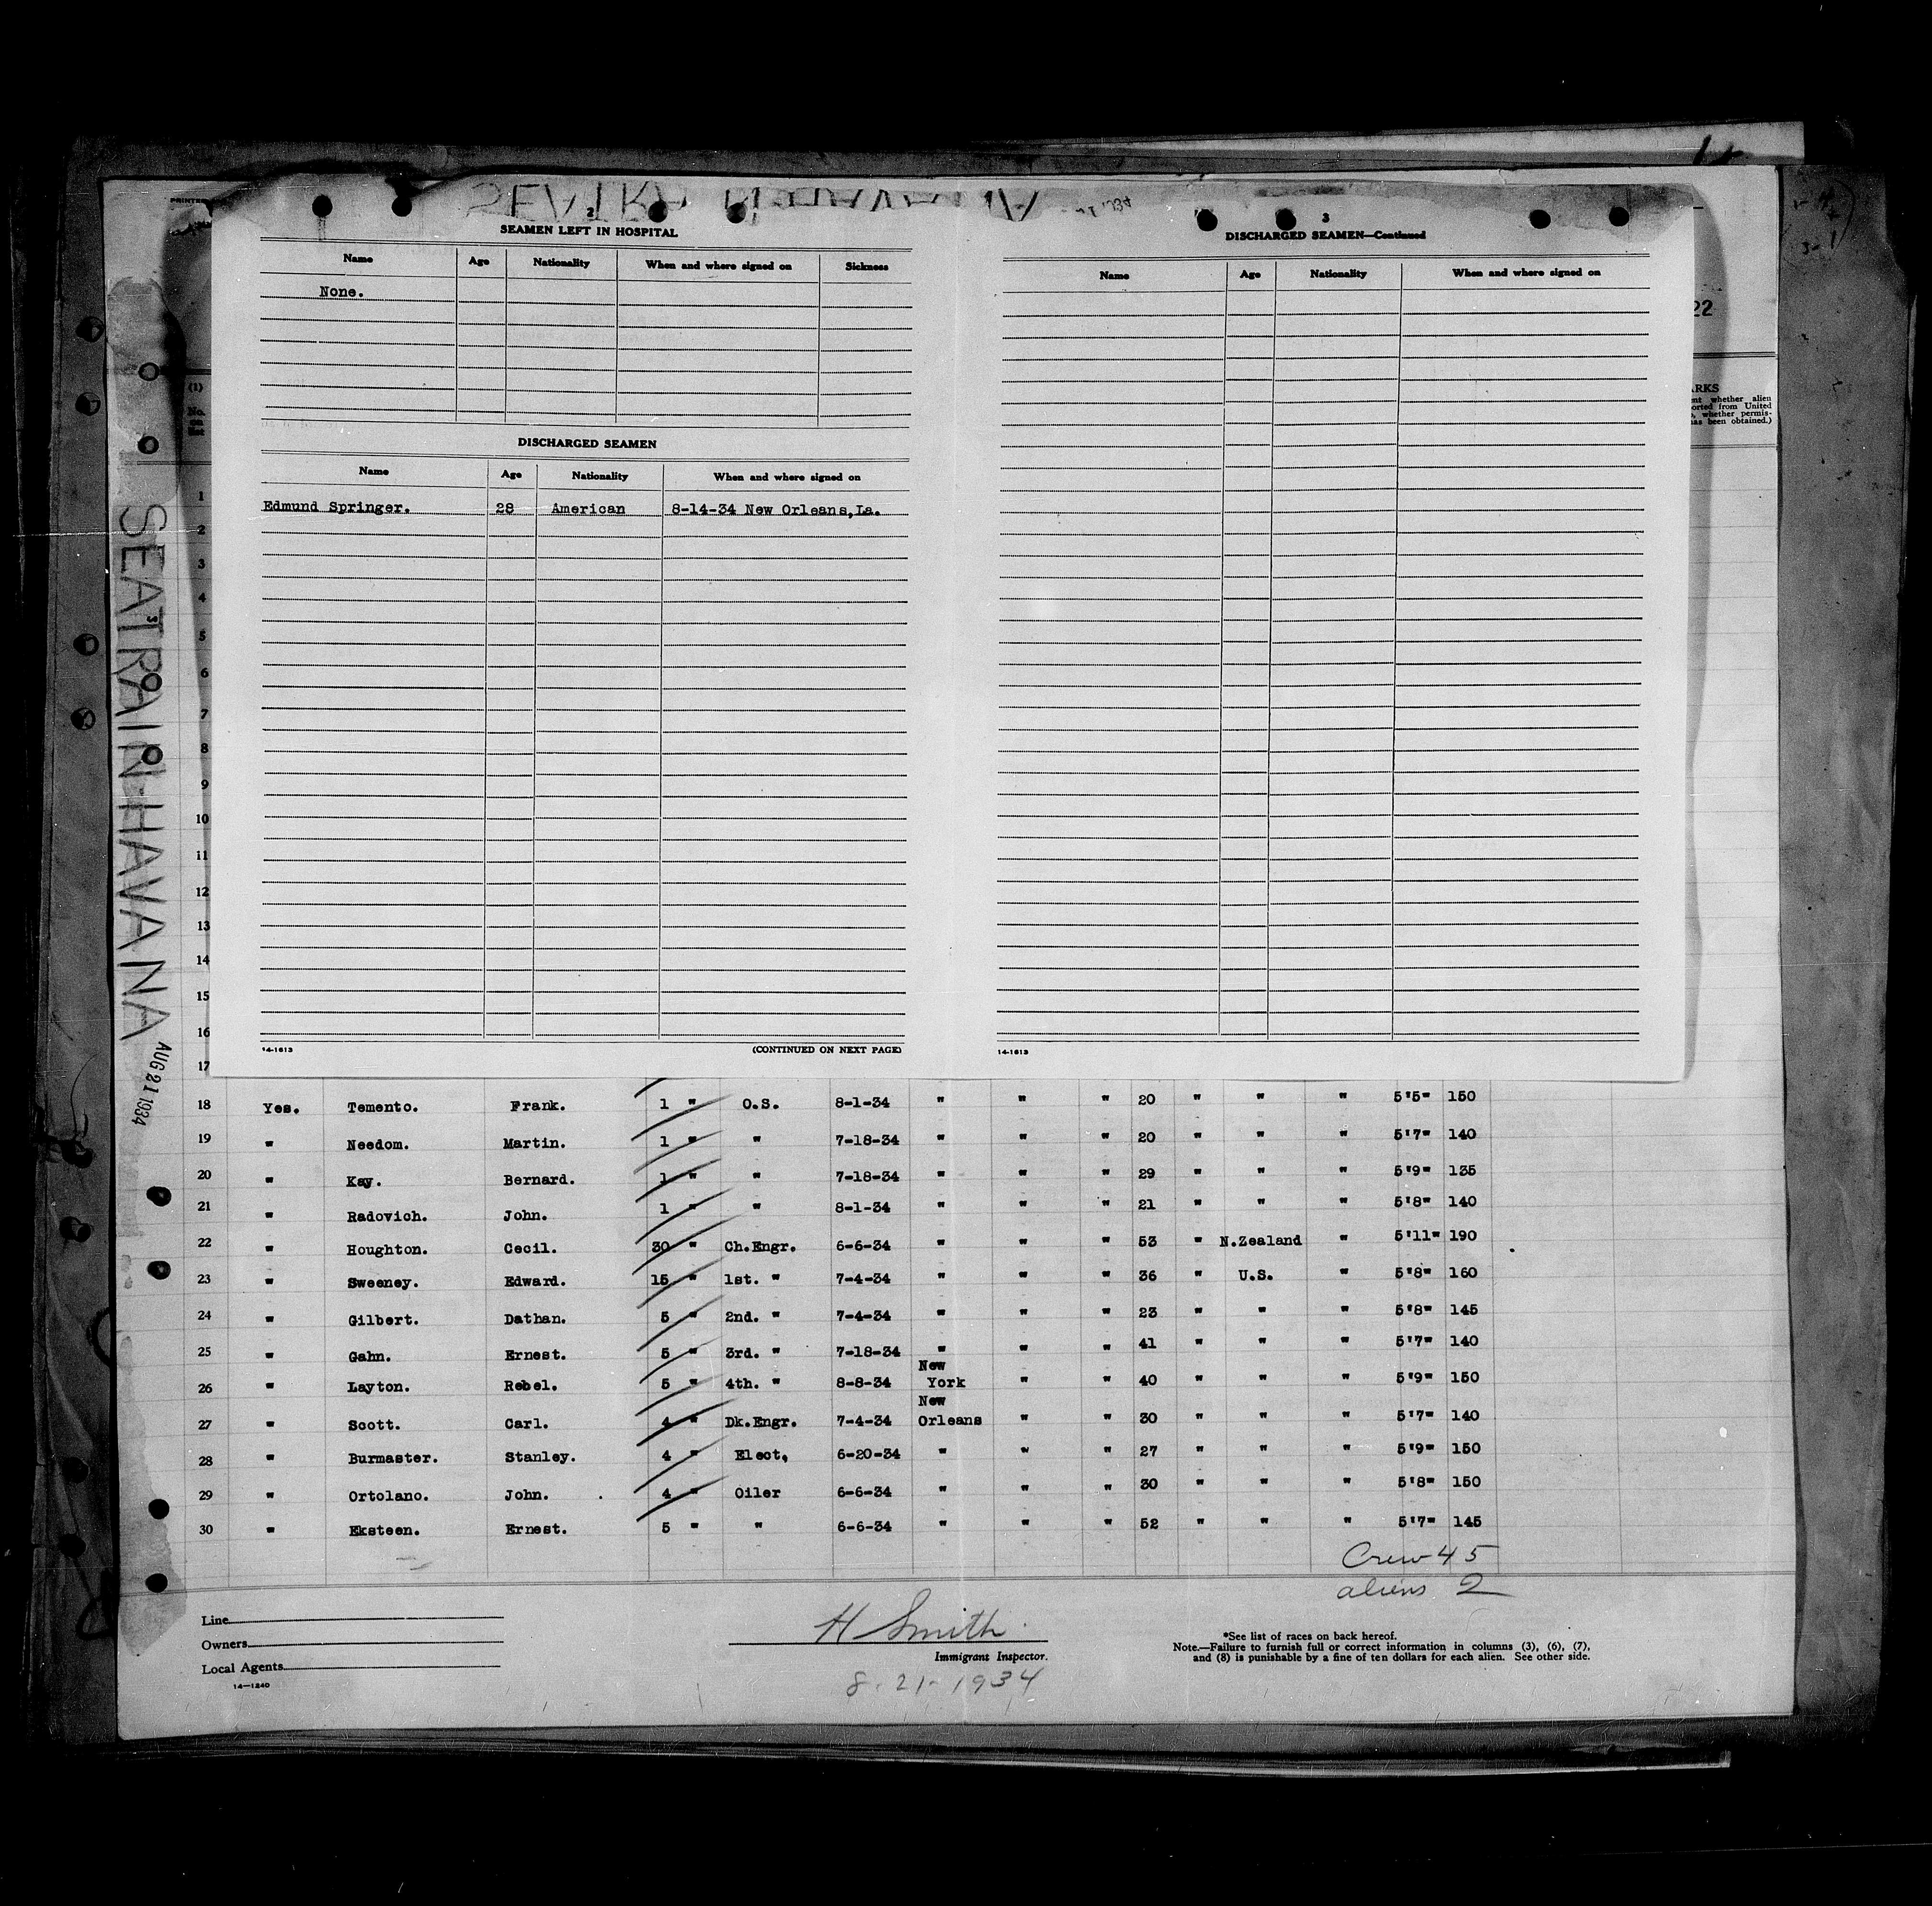 SEATRAIN-HAVANA
AUG 21 1934
PRINTED
2
SEAMEN LEFT IN HOSPITAL
Name Age Nationality When and where signed on Sickness
None.
DISCHARGED SEAMEN
Name Age Nationality When and where signed on
Edmund Springer. 28 American 8-14-34 New Orleans,La.
14-1613 (CONTINUED ON NEXT PAGE)
3
DISCHARGED SEAMEN—Continued
Name Age Nationality When and where signed on
14-1613
22
ARKS
ent whether alien
orted from United
, whether permis-
has been obtained.)
(1)
No.
1
2
3
4
5
6
7
8
9
10
11
12
13
14
15
16
17
18 Yes. Temento. Frank. 1 " O.S. 8-1-34 " " " 20 " " " 5'5" 150
19 " Needom. Martin. 1 " " 7-18-34 " " " 20 " " " 5'7" 140
20 " Kay. Bernard. 1 " " 7-18-34 " " " 29 " " " 5'9" 135
21 " Radovich. John. 1 " " 8-1-34 " " " 21 " " " 5'8" 140
22 " Houghton. Cecil. 30 " Ch.Engr. 6-6-34 " " " 53 " N.Zealand " 5'11" 190
23 " Sweeney. Edward. 15 " 1st. " 7-4-34 " " " 36 " U.S. " 5'8" 160
24 " Gilbert. Dathan. 5 " 2nd. " 7-4-34 " " " 23 " " " 5'8" 145
25 " Gahn. Ernest. 5 " 3rd. " 7-18-34 " " " 41 " " " 5'7" 140
New
26 " Layton. Rebel. 5 " 4th. " 8-8-34 York " " 40 " " " 5'9" 150
New
27 " Scott. Carl. 4 " Dk.Engr. 7-4-34 Orleans " " 30 " " " 5'7" 140
28 " Burmaster. Stanley. 4 " Elect. 6-20-34 " " " 27 " " " 5'9" 150
29 " Ortolano. John. 4 " Oiler 6-6-34 " " " 30 " " " 5'8" 150
30 " Eksteen. Ernest. 5 " " 6-6-34 " " " 52 " " " 5'7" 145
Crew 45
aliens 2
Line
Owners
Local Agents
14—1240
H Smith
Immigrant Inspector.
8-21-1934
*See list of races on back hereof.
Note.—Failure to furnish full or correct information in columns (3), (6), (7),
and (8) is punishable by a fine of ten dollars for each alien. See other side.